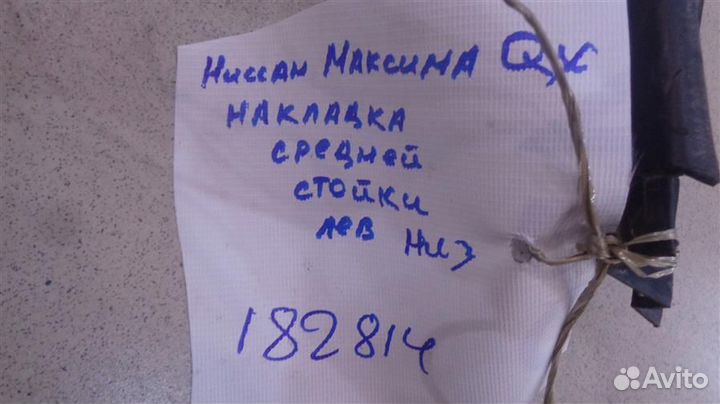 Ниссан Максима QX
накладка
средней
стойки
лев низ
182814
Avito